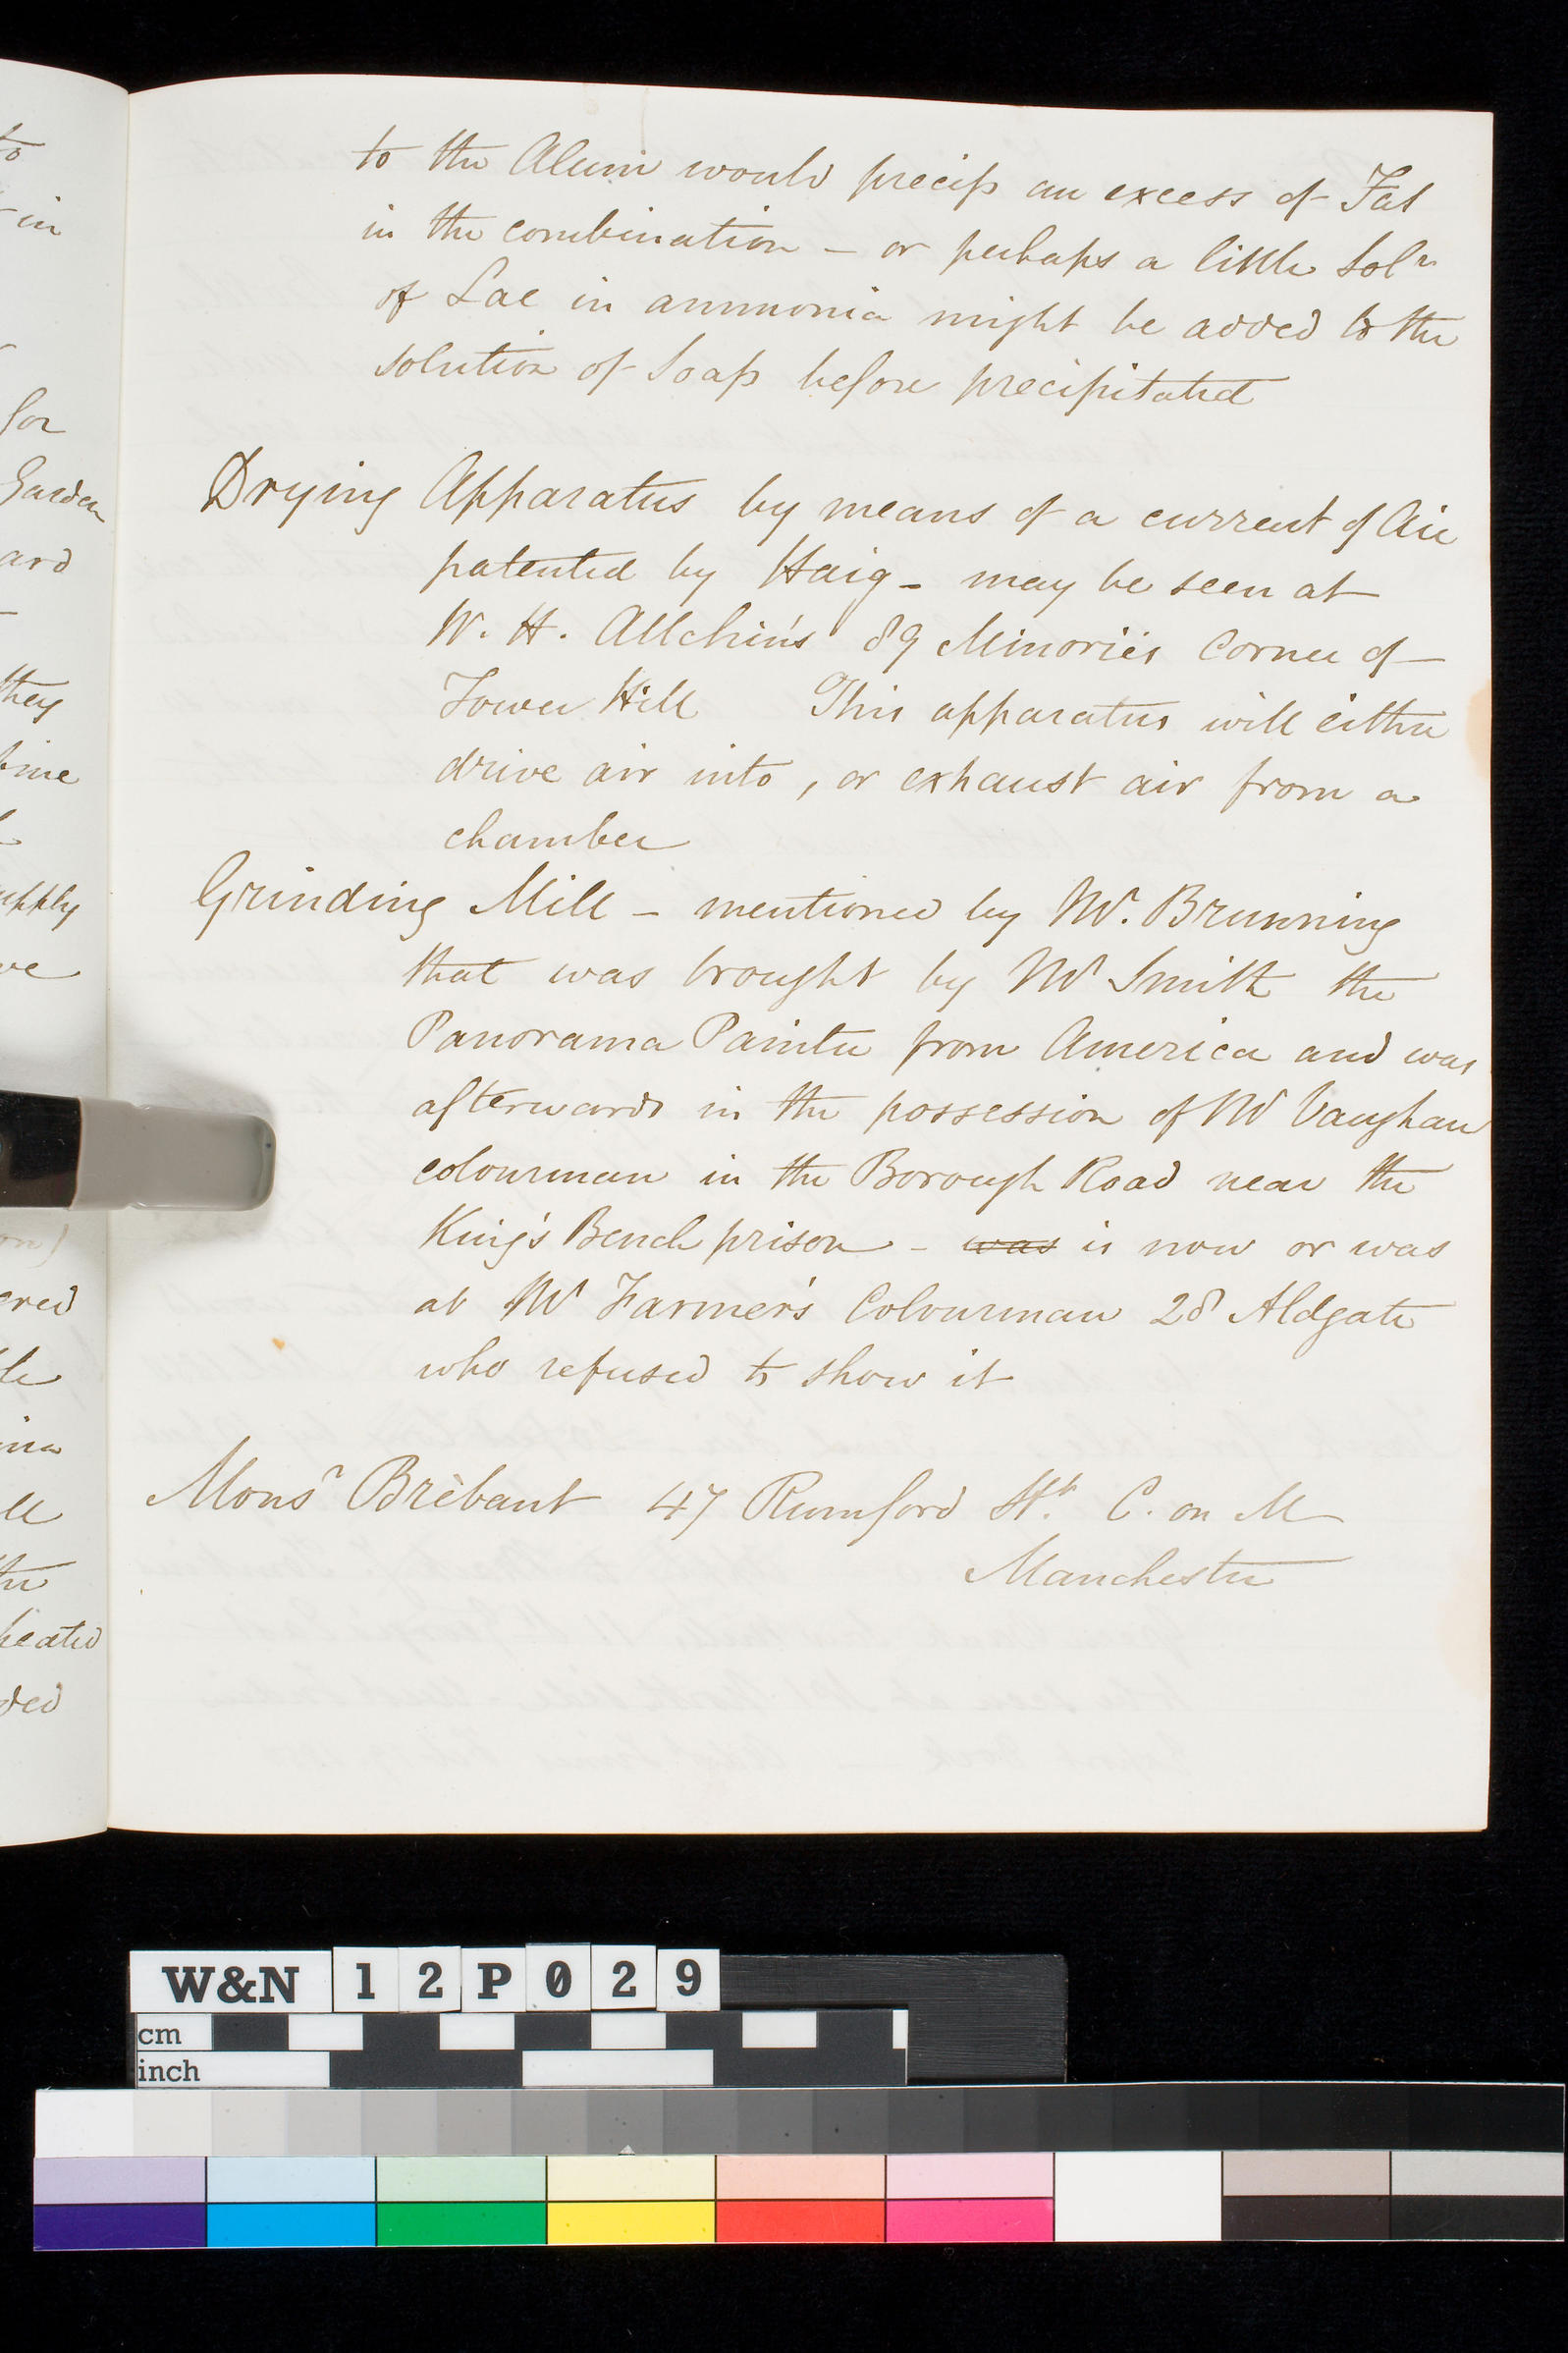 to the Alum would precip an excess of Fat
in the combination – or perhaps a little Solⁿ
of Lac in ammonia might be added to the
solution of Soap before precipitated
Drying Apparatus by means of a current of Air
patented by Haig – may be seen at
W. H. Allchin's 89 Minories Corner of
Tower Hill This apparatus will either
drive air into, or exhaust air from a
chamber
Grinding Mill – mentioned by Mr. Brunning
that was brought by Mr Smith the
Panorama Painter from America and was
afterwards in the possession of Mr Vaughan
colourman in the Borough Road near the
King's Bench prison – was is now or was
at Mr Farmer's Colourman 28 Aldgate
who refused to show it
Monsr Brèbant 47 Rumford St. C. on M
Manchester
to
in
for
Garden
ard
they
upply
ve
ered
heated
ded
W&N 12P029
cm
inch